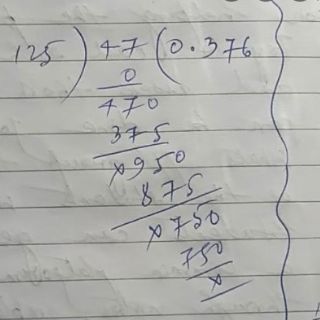 125 ) 47 ( 0.376
0
470
375
x950
875
x750
750
x